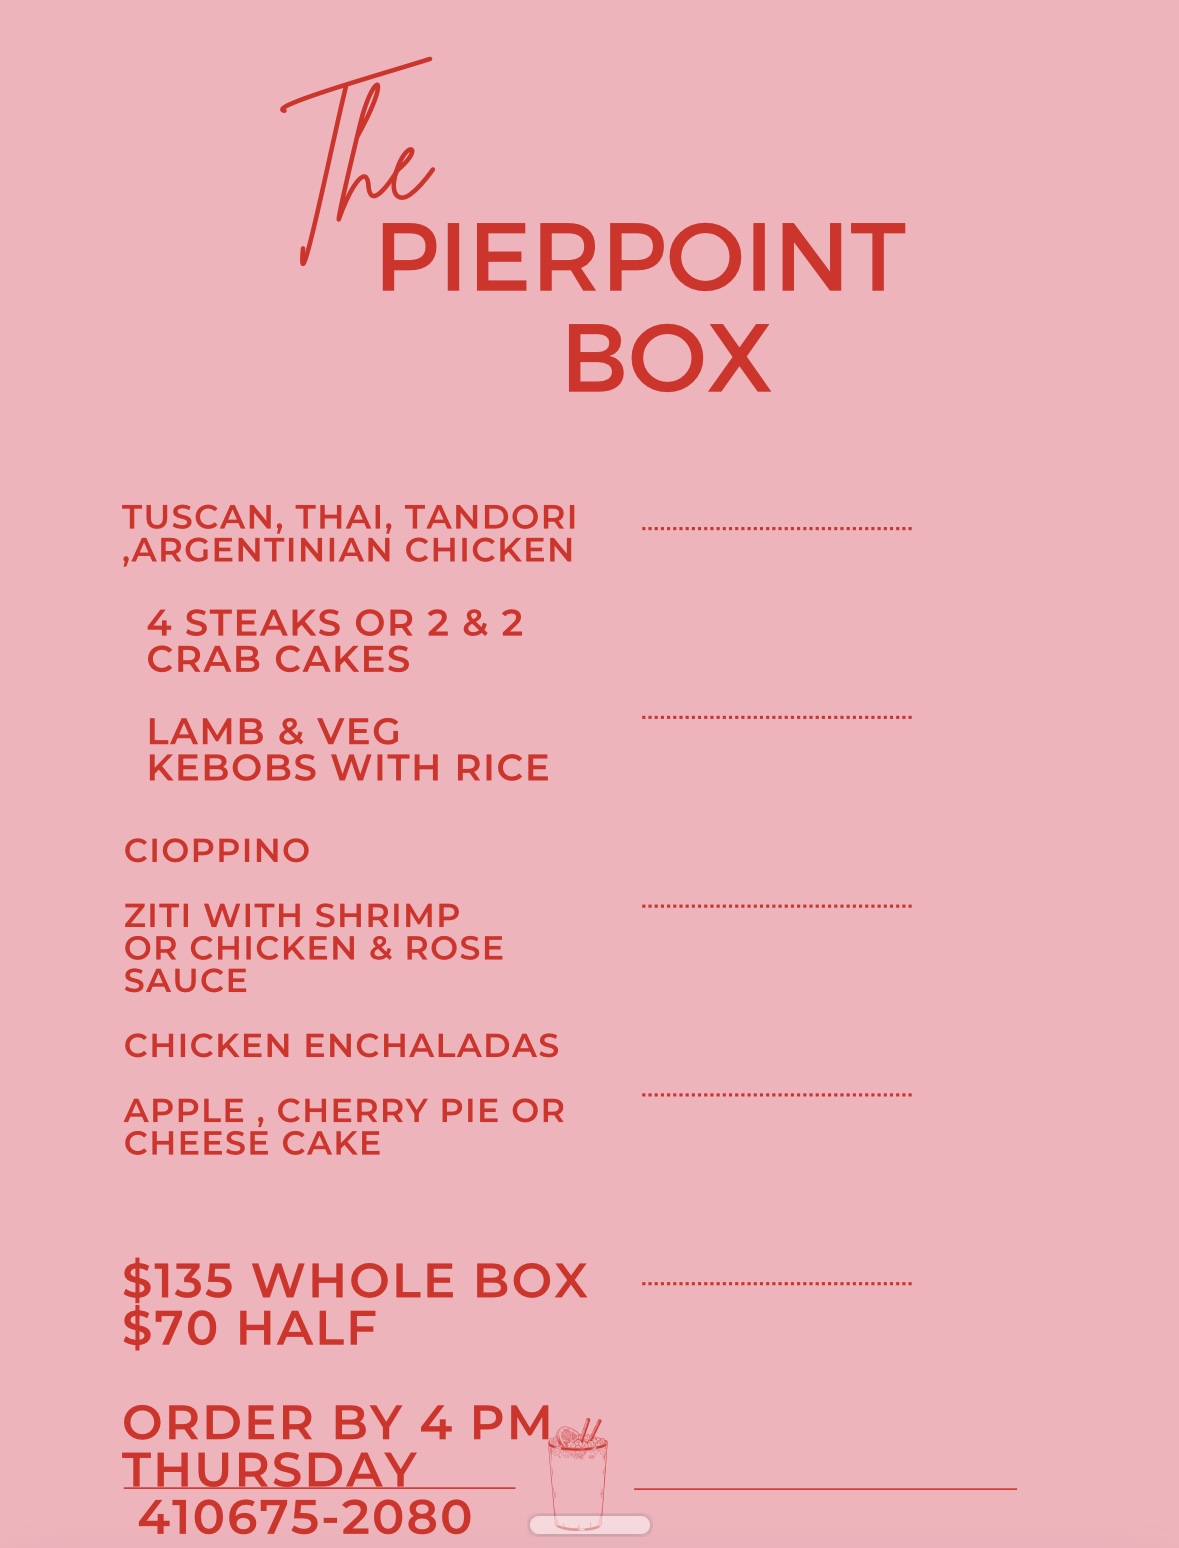 The
PIERPOINT
BOX
TUSCAN, THAI, TANDORI
,ARGENTINIAN CHICKEN
4 STEAKS OR 2 & 2
CRAB CAKES
LAMB & VEG
KEBOBS WITH RICE
CIOPPINO
ZITI WITH SHRIMP
OR CHICKEN & ROSE
SAUCE
CHICKEN ENCHALADAS
APPLE , CHERRY PIE OR
CHEESE CAKE
$135 WHOLE BOX
$70 HALF
ORDER BY 4 PM
THURSDAY
410675-2080